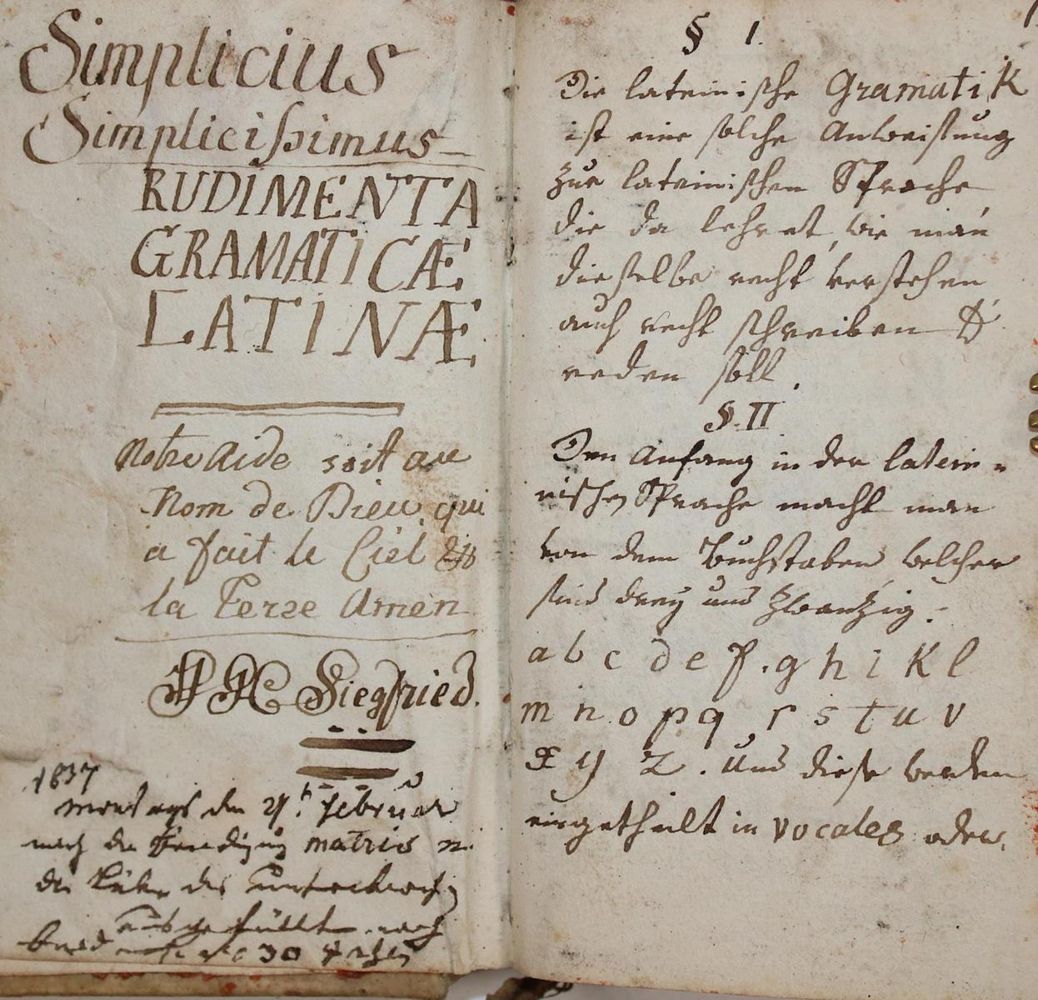 Simplicius
Simplicissimus
RUDIMENTA
GRAMATICÆ
LATINÆ
Notre Aide soit au
Nom de Dieu, qui
a fait le Ciel &
la Terre Amen
Siegfried.
1837
den Februar
nach der matris
30
§ 1.
Die lateinische Gramatik
ist eine solche Anweisung
zur lateinischen Sprache
die da lehret, wie man
dieselbe recht verstehen
auch recht schreiben &
reden soll.
§. II
Den Anfang in der latei-
nischen Sprache macht man
von dem Buchstaben, welcher
sind drey und zwanzig.
a b c d e f. g h i K l
m n. o p q r s t u v
x y z. Und diese werden
eingetheilt in vocales oder